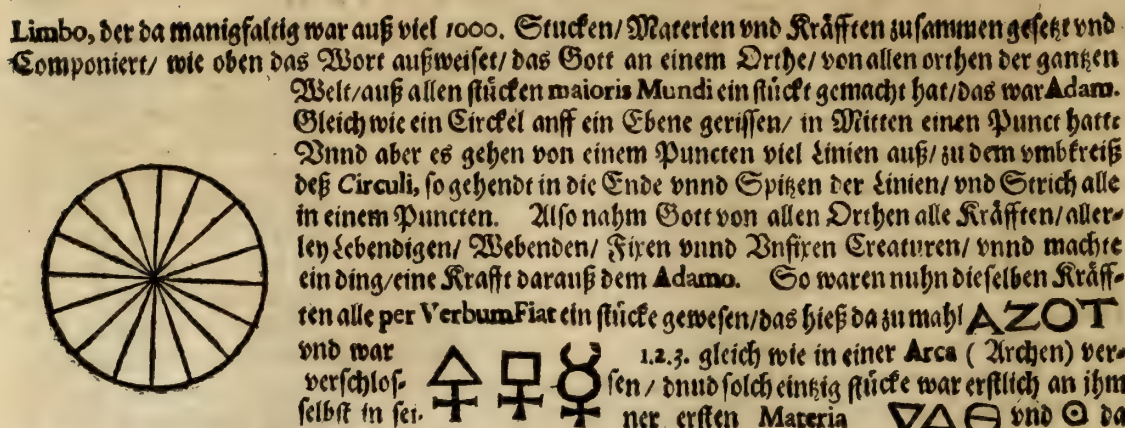 Limbo, der da manigfaltig war auß viel 1000. Stucken/ Materien vnd Kräfften zusammen gesetzt vnd
Componiert/ wie oben das Wort außweiset/ das Gott an einem Orthe/ von allen orthen der gantzen
Welt/ auß allen stücken maioris Mundi ein stückt gemacht hat/ das war Adam.
Gleich wie ein Circkel anff ein Ebene gerissen/ in Mitten einen Punct hatte
Vnnd aber es gehen von einem Puncten viel Linien auß/ zu dem vmbkreiß
deß Circuli, so gehendt in die Ende vnnd Spitzen der Linien/ vnd Strich alle
in einem Puncten. Also nahm Gott von allen Orthen alle Kräfften/ aller-
ley Lebendigen/ Webenden/ Fixen vnnd Vnfixen Creaturen/ vnnd machte
ein ding/ eine Krafft darauß dem Adamo. So waren nuhn dieselben Kräff-
ten alle per Verbum Fiat ein stücke gewesen/ das hieß da zu mahl AZOT
vnd war 🜍 1.2.3. gleich wie in einer Arca ( Archen) ver-
verschlos- sen/ vnnd solch eintzig stücke war erstlich an ihm
selbst in sei- ner ersten Materia 🜄 🜂 🜔 vnd ☉ da